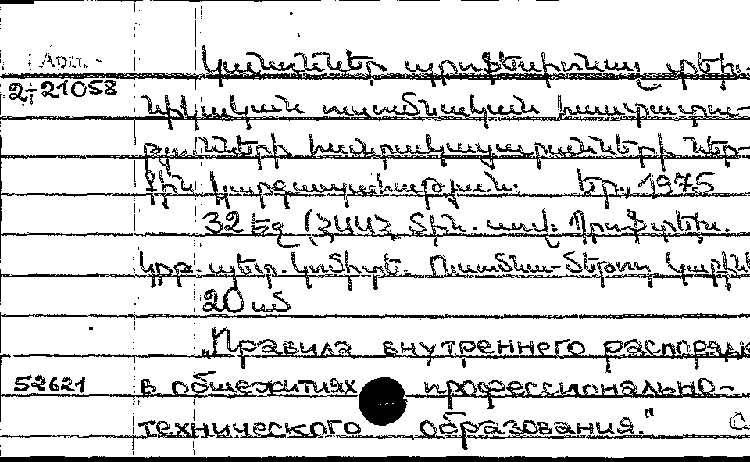 Կանոններ պրոֆեսիոնալ տեխ-
նիկական ուսումնական հաստատու-
թյունների հանրակացարանների ներ-
քին կարգապահության. Եր., 1975
32 էջ (ՀՍՍՀ Մին. սով. Պրոֆ. տեխ.
կրթ. պետ. կոմիտե. Ուսումնա-մեթոդ.
20 սմ
"Правила внутреннего распорядк
52621 в общежитиях профессионально-
технического образования."